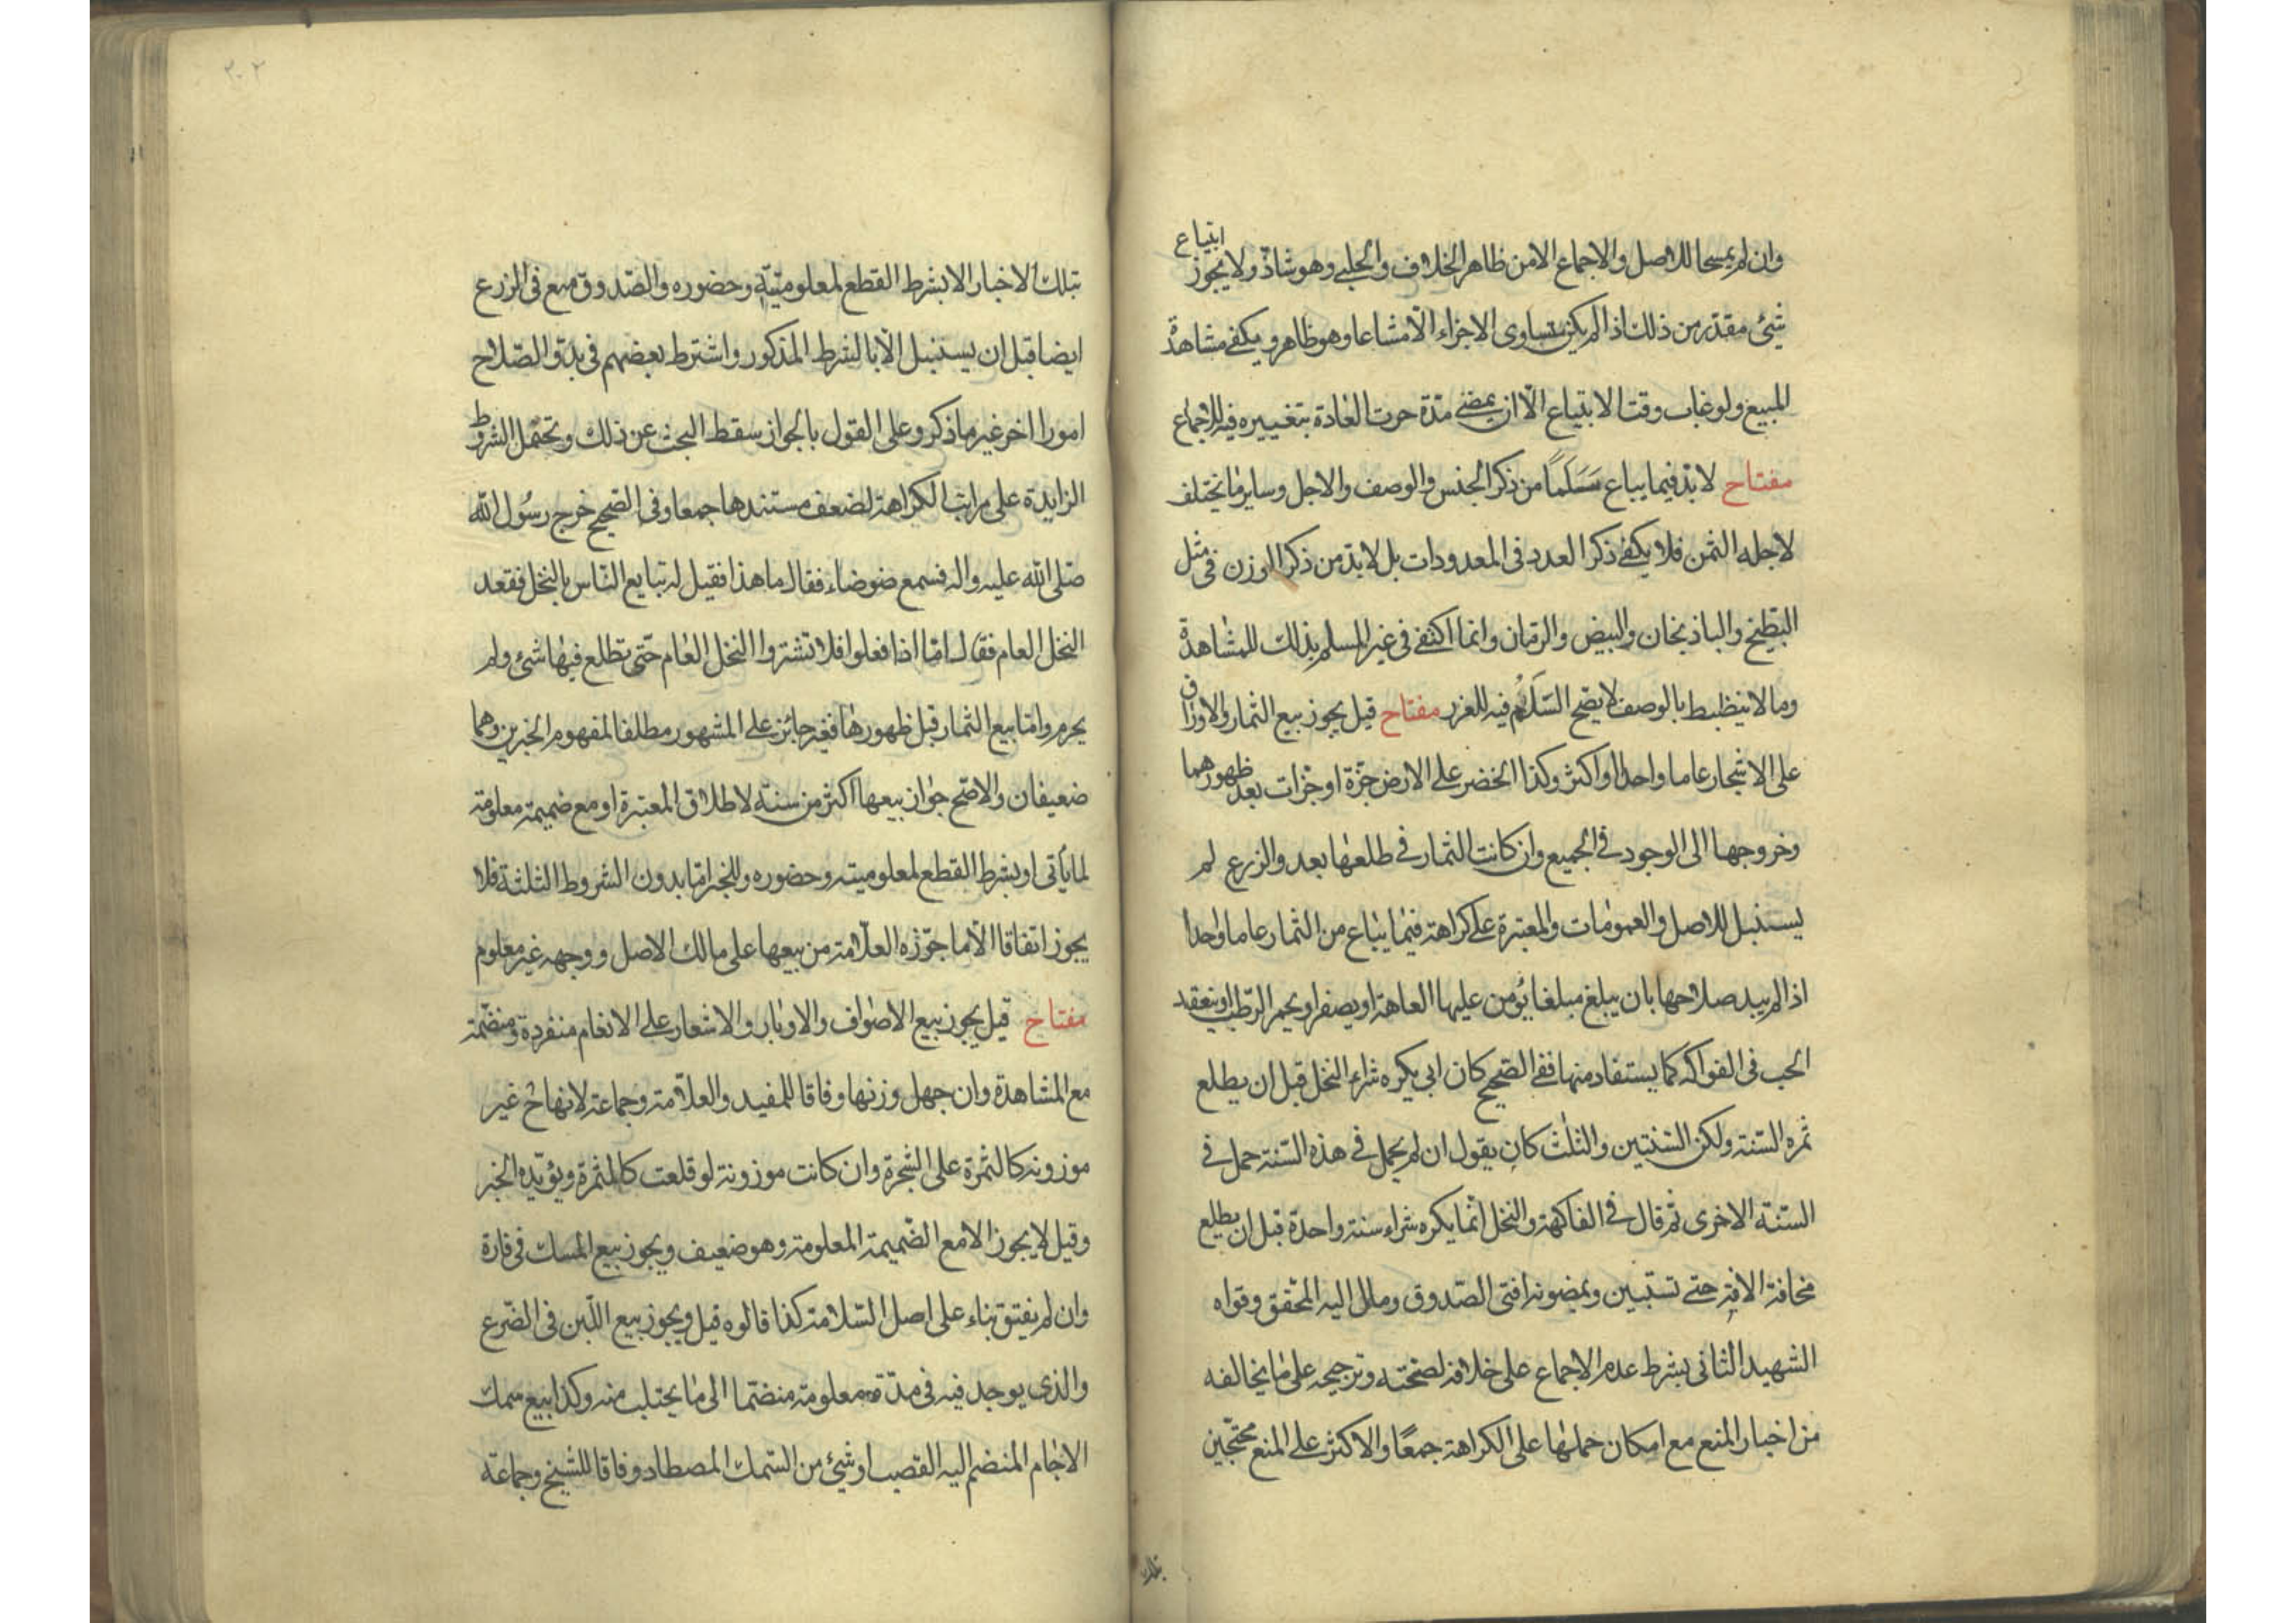 وان لم يمسحا للاصل والاجماع الا من ظاهر الخلاف والحلبي وهو شاذ ولا يجوز ابتياع
شئ مقدر من ذلك اذا لم يكن متساوى الاجزاء الا مشاعا وهو ظاهر ويكفي مشاهدة
المبيع ولو غاب وقت الابتياع الا ان يمضي مدة جرت العادة بتغييره فيه للاجماع
مفتاح لا بد فيما يباع سَلَمًا من ذكر الجنس والوصف والاجل وساير ما يختلف
لاجله الثمن فلا يكفي ذكر العدد فى المعدودات بل لا بد من ذكر الوزن فى مثل
البطيخ والباذنجان والبيض والرمان وانما اكتفي فى غير المسلم بذلك للمشاهدة
وما لا ينظبط بالوصف لا يصح السَّلَم فيه للغرر مفتاح قيل يجوز بيع الثمار والاوراق
على الاشجار عاما واحدا او اكثر وكذا الخضر على الارض جزة او جزات بعد ظهورهما
وخروجها الى الوجود فى الجميع وان كانت الثمار فى طلعها بعد والزرع لم
يسنبل للاصل والعمومات والمعتبرة على كراهة فيما يباع من الثمار عاما واحدا
اذا لم يبد صلاحها بان يبلغ مبلغا يؤمن عليها العاهة او يصفر او يحمر الرطب او ينعقد
الحب فى الفواكه كما يستفاد منها ففى الصحيح كان ابى يكره شراء النخل قبل ان يطلع
ثمره السنة ولكن السنتين والثلث كان يقول ان لم يحمل فى هذه السنة حمل فى
السنة الاخرى ثم قال فى الفاكهة والنخل انما يكره شراء سنة واحدة قبل ان يطلع
مخافة الافة حتى تستبين وبمضمونه افتى الصدوق ومال اليه المحقق وقواه
الشهيد الثانى بشرط عدم الاجماع على خلافه لصحته وترجيحه على ما يخالفه
من اخبار المنع مع امكان حملها على الكراهة جمعًا والاكثر على المنع محتجين
بتلك
٢٠٢
بتلك الاخبار الا بشرط القطع لمعلوميته وحضوره والصدوق منع فى الزرع
ايضا قبل ان يسنبل الا بالشرط المذكور واشترط بعضهم فى بدو الصلاح
امورا اخر غير ما ذكر وعلى القول بالجواز سقط البحث عن ذلك وتحمل الشروط
الزايدة على مراتب الكراهة لضعف مستندها جمعا وفى الصحيح خرج رسول الله
صلى الله عليه واله فسمع ضوضاء فقال ما هذا فقيل له تبايع الناس بالنخل فقعد
النخل العام فقال اما اذا فعلوا فلا تشتروا النخل العام حتى تطلع فيها شئ ولم
يحرم واما بيع الثمار قبل ظهورها فغير جائز على المشهور مطلقا لمفهوم الخبرين وهما
ضعيفان والاصح جواز بيعها اكثر من سنة لاطلاق المعتبرة او مع ضميمة معلومة
لما يأتى او بشرط القطع لمعلوميته وحضوره وللخبر اما بدون الشروط الثلثة فلا
يجوز اتفاقا الا ما جوزه العلامة من بيعها على مالك الاصل ووجهه غير معلوم
مفتاح قيل يجوز بيع الاصواف والاوبار والاشعار على الانعام منفردة ومنضمة
مع المشاهدة وان جهل وزنها وفاقا للمفيد والعلامة وجماعة لانها ح غير
موزونة كالثمرة على الشجرة وان كانت موزونة لو قلعت كالمثمرة ويؤيده الخبر
وقيل لا يجوز الا مع الضميمة المعلومة وهو ضعيف ويجوز بيع المسك فى فارة
وان لم يفتق بناء على اصل السلامة كذا قالوه قيل ويجوز بيع اللبن فى الضرع
والذى يوجد فيه فى مدة معلومة منضما الى ما يحتلب منه وكذا بيع سمك
الاجام المنضم اليه القصب او شئ من السمك المصطاد وفاقا للشيخ وجماعة